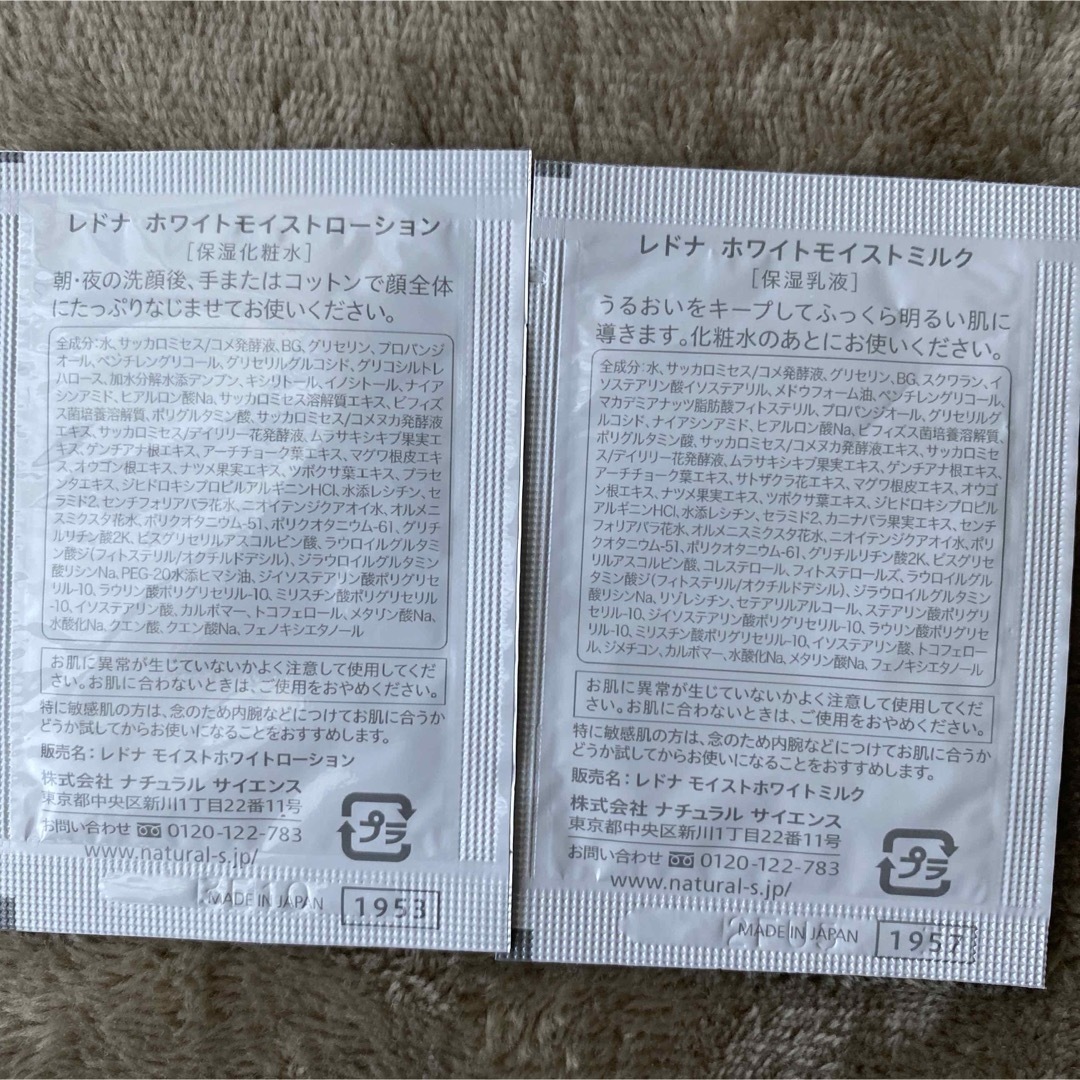 レドナ ホワイトモイストローション
[保湿化粧水]
朝・夜の洗顔後、手またはコットンで顔全体
にたっぷりなじませてお使いください。
全成分:水、サッカロミセス/コメ発酵液、BG、グリセリン、プロパンジ
オール、ペンチレングリコール、グリセリルグルコシド、グリコシルトレ
ハロース、加水分解水添デンプン、キシリトール、イノシトール、ナイア
シンアミド、ヒアルロン酸Na、サッカロミセス溶解質エキス、ビフィズ
ス菌培養溶解質、ポリグルタミン酸、サッカロミセス/コメヌカ発酵液
エキス、サッカロミセス/デイリリー花発酵液、ムラサキシキブ果実エ
キス、ゲンチアナ根エキス、アーチチョーク葉エキス、マグワ根皮エキ
ス、オウゴン根エキス、ナツメ果実エキス、ツボクサ葉エキス、プラセ
ンタエキス、ジヒドロキシプロピルアルギニンHCl、水添レシチン、セ
ラミド2、センチフォリアバラ花水、ニオイテンジクアオイ水、オルメニ
スミクスタ花水、ポリクオタニウム-51、ポリクオタニウム-61、グリチ
ルリチン酸2K、ビスグリセリルアスコルビン酸、ラウロイルグルタミ
ン酸ジ(フィトステリル/オクチルドデシル)、ジラウロイルグルタミン
酸リシンNa、PEG-20水添ヒマシ油、ジイソステアリン酸ポリグリセ
リル-10、ラウリン酸ポリグリセリル-10、ミリスチン酸ポリグリセリル
-10、イソステアリン酸、カルボマー、トコフェロール、メタリン酸Na、
水酸化Na、クエン酸、クエン酸Na、フェノキシエタノール
お肌に異常が生じていないかよく注意して使用してくだ
さい。お肌に合わないときは、ご使用をおやめください。
特に敏感肌の方は、念のため内腕などにつけてお肌に合うか
どうか試してからお使いになることをおすすめします。
販売名:レドナ モイストホワイトローション
株式会社 ナチュラル サイエンス
東京都中央区新川1丁目22番11号
お問い合わせ 0120-122-783
www.natural-s.jp/
プラ
MADE IN JAPAN
1953
レドナ ホワイトモイストミルク
[保湿乳液]
うるおいをキープしてふっくら明るい肌に
導きます。化粧水のあとにお使いください。
全成分:水、サッカロミセス/コメ発酵液、グリセリン、BG、スクワラン、イ
ソステアリン酸イソステアリル、メドウフォーム油、ペンチレングリコール、
マカデミアナッツ脂肪酸フィトステリル、プロパンジオール、グリセリルグ
ルコシド、ナイアシンアミド、ヒアルロン酸Na、ビフィズス菌培養溶解質、
ポリグルタミン酸、サッカロミセス/コメヌカ発酵液エキス、サッカロミセス
/デイリリー花発酵液、ムラサキシキブ果実エキス、ゲンチアナ根エキス、
アーチチョーク葉エキス、サトザクラ花エキス、マグワ根皮エキス、オウゴ
ン根エキス、ナツメ果実エキス、ツボクサ葉エキス、ジヒドロキシプロピル
アルギニンHCl、水添レシチン、セラミド2、カニナバラ果実エキス、センチ
フォリアバラ花水、オルメニスミクスタ花水、ニオイテンジクアオイ水、ポリ
クオタニウム-51、ポリクオタニウム-61、グリチルリチン酸2K、ビスグリセ
リルアスコルビン酸、コレステロール、フィトステロールズ、ラウロイルグル
タミン酸ジ(フィトステリル/オクチルドデシル)、ジラウロイルグルタミン
酸リシンNa、リゾレシチン、セテアリルアルコール、ステアリン酸ポリグリ
セリル-10、ジイソステアリン酸ポリグリセリル-10、ラウリン酸ポリグリセ
リル-10、ミリスチン酸ポリグリセリル-10、イソステアリン酸、トコフェロー
ル、ジメチコン、カルボマー、水酸化Na、メタリン酸Na、フェノキシエタノール
お肌に異常が生じていないかよく注意して使用してくだ
さい。お肌に合わないときは、ご使用をおやめください。
特に敏感肌の方は、念のため内腕などにつけてお肌に合うか
どうか試してからお使いになることをおすすめします。
販売名:レドナ モイストホワイトミルク
株式会社 ナチュラル サイエンス
東京都中央区新川1丁目22番11号
お問い合わせ 0120-122-783
www.natural-s.jp/
プラ
MADE IN JAPAN
1957